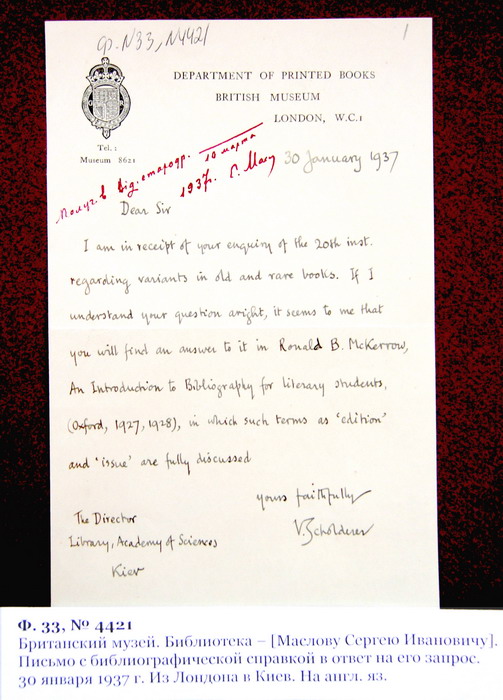 Ф. N33, N4421
1
DEPARTMENT OF PRINTED BOOKS
BRITISH MUSEUM
LONDON, W.C.1
Tel. :
Museum 8621
Получ. в від. стародр. 10 марта
1937г. С. Масл
30 January 1937
Dear Sir
I am in receipt of your enquiry of the 20th inst.
regarding variants in old and rare books. If I
understand your question aright, it seems to me that
you will find an answer to it in Ronald B. McKerrow,
An Introduction to Bibliography for literary students,
(Oxford, 1927, 1928), in which such terms as 'edition'
and 'issue' are fully discussed
yours faithfully
V. Scholderer
The Director
Library, Academy of Sciences
Kiev
Ф. 33, № 4421
Британский музей. Библиотека – [Маслову Сергею Ивановичу].
Письмо с библиографической справкой в ответ на его запрос.
30 января 1937 г. Из Лондона в Киев. На англ. яз.